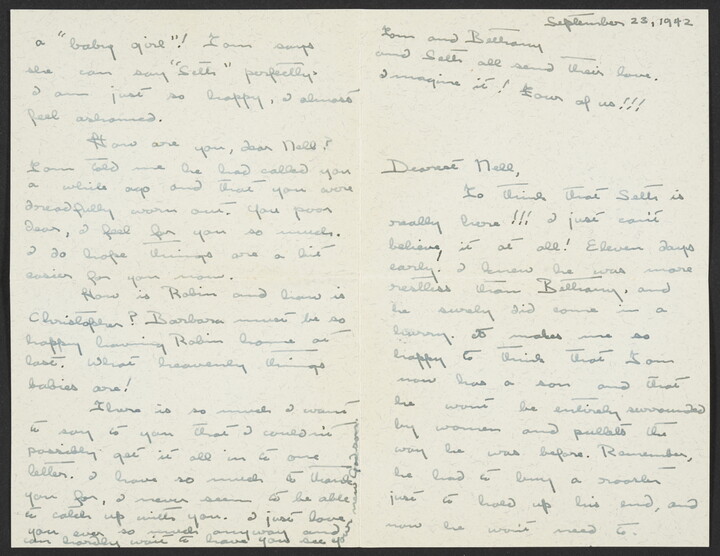 September 23, 1942
Tom and Bethany
and Seth all send their love.
Imagine it! Four of us!!!
Dearest Nell,
To think that Seth is
really here!!! I just can't
believe it at all! Eleven days
early. I knew he was more
restless than Bethany, and
he surely did come in a
hurry. It makes me so
happy to think that Tom
now has a son and that
he won't be entirely surrounded
by women and pullets the
way he was before. Remember,
he had to buy a rooster
just to hold up his end, and
now he won't need to.
a "baby girl"! Tom says
she can say "Seth" perfectly.
I am just so happy, I almost
feel ashamed.
How are you, dear Nell?
Tom told me he had called you
a while ago and that you were
dreadfully worn out. You poor
dear, I feel for you so much.
I do hope things are a bit
easier for you now.
How is Robin and how is
Christopher? Barbara must be so
happy having Robin home at
last. What heavenly things
babies are!
There is so much I want
to say to you that I couldn't
possibly get it all in to one
letter. I have so much to thank
you for, I never seem to be able
to catch up with you. I just love
you ever so much anyway and
can hardly wait to have you see